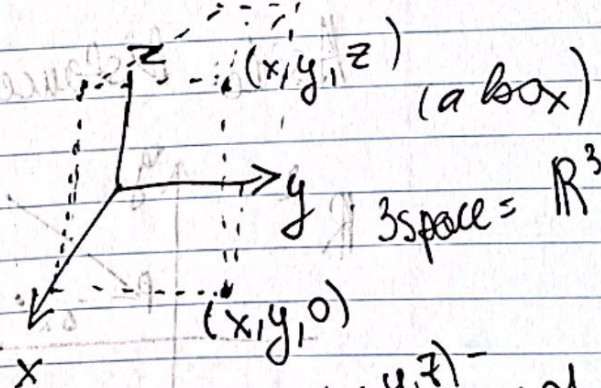 z
(x,y,z)
(a box)
y
3space = ℝ³
(x,y,0)
x